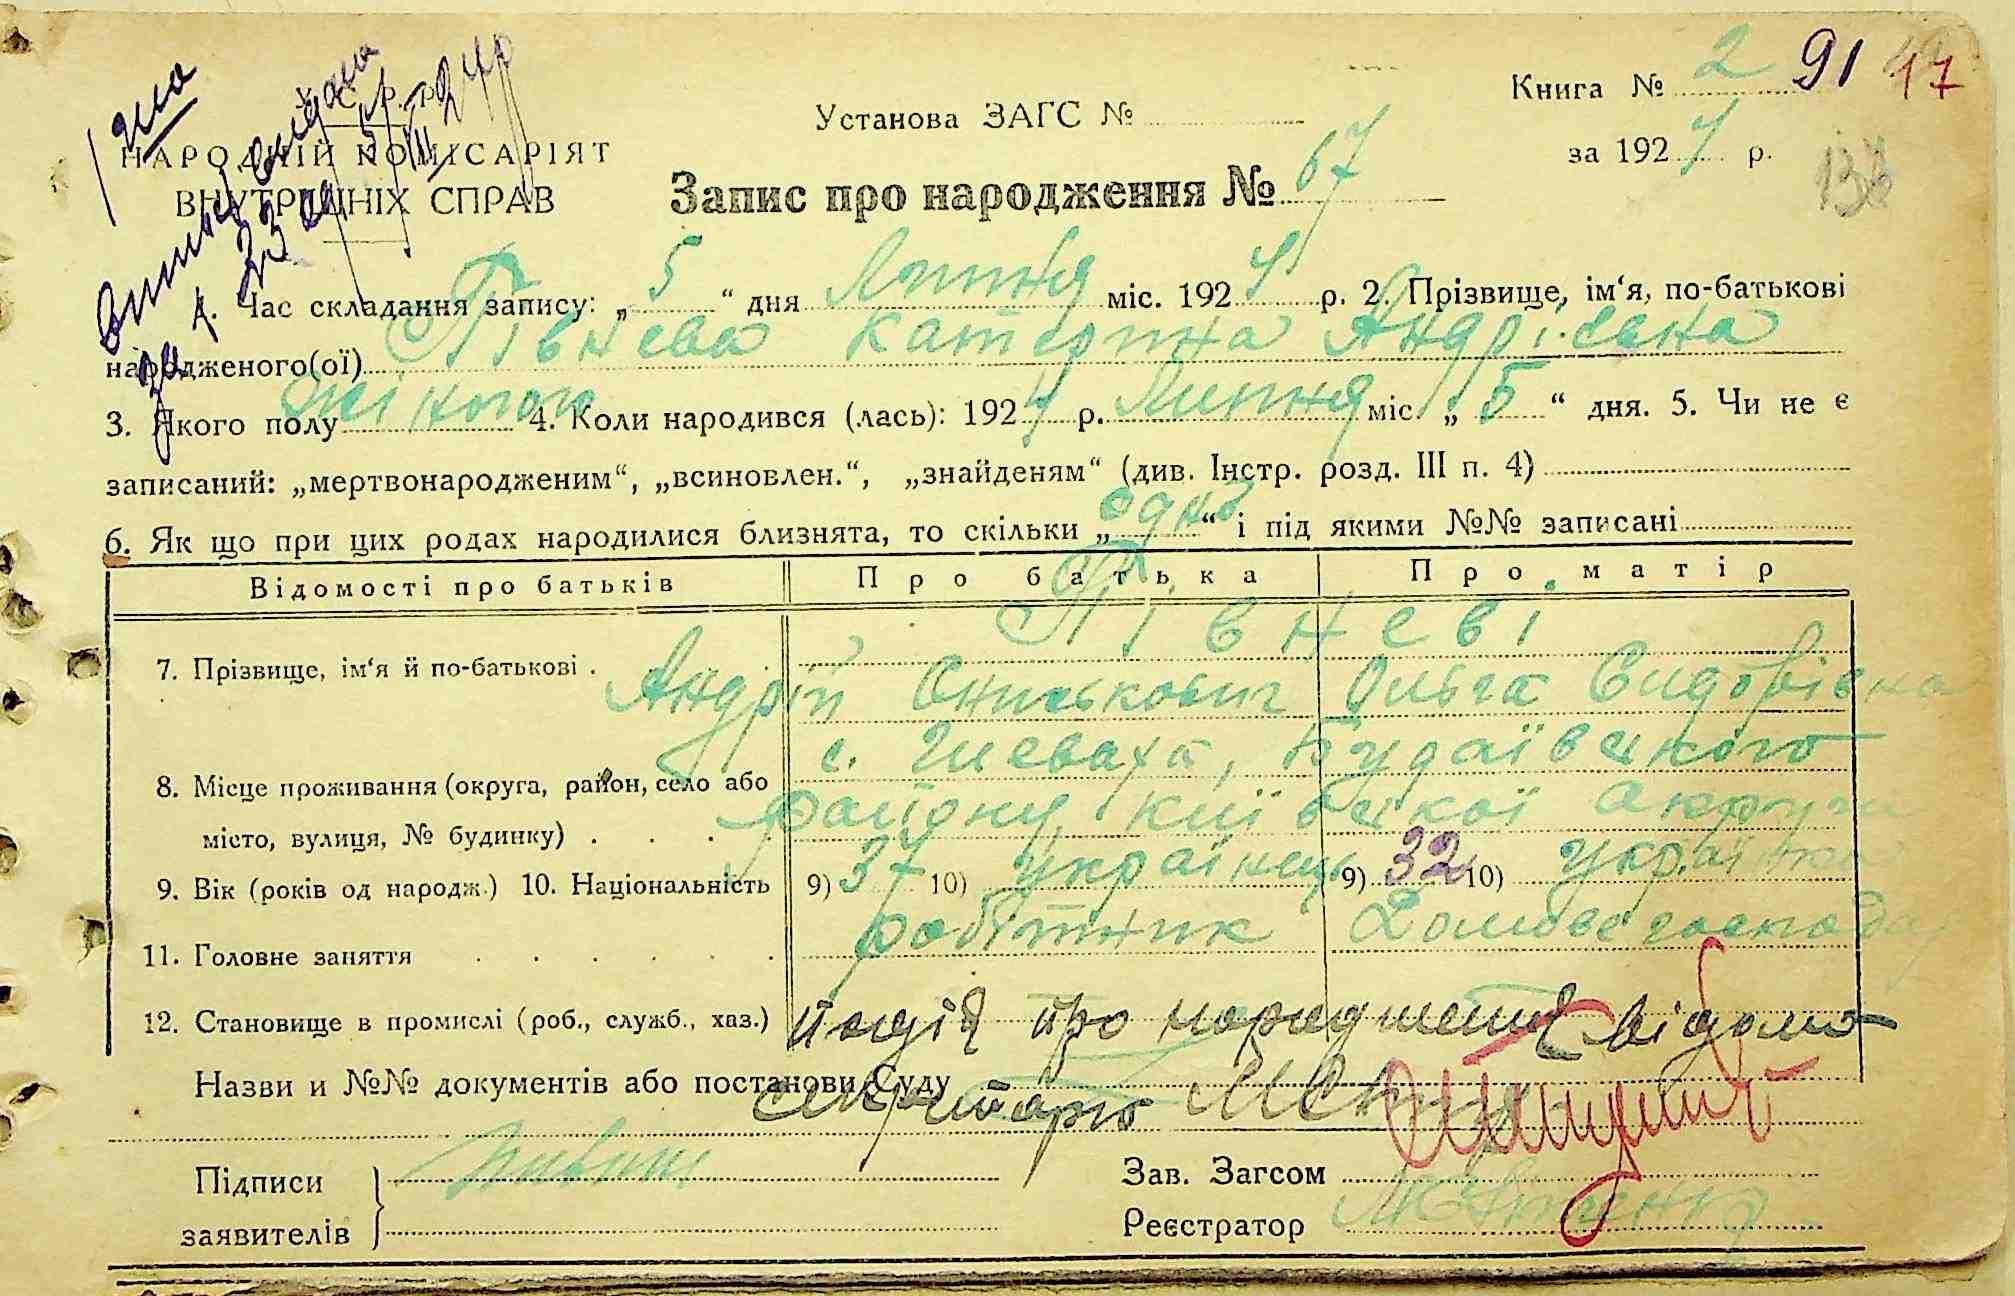 Книга № 2 91 17
У. С. Р. Р.
Установа ЗАГС №
НАРОДНІЙ КОМІСАРІЯТ
за 1924 р.
138
ВНУТРІШНІХ СПРАВ
Запис про народження № 67
1. Час складання запису: „5“ дня Липня міс. 1924 р. 2. Прізвище, ім‘я, по-батькові
народженого(ої) Півнева Катерина Андріівна
3. Якого полу жіночого 4. Коли народився (лась): 1924 р. Липня міс. „5“ дня. 5. Чи не є
записаний: „мертвонародженим“, „всиновлен.“, „знайденям“ (див. Інстр. розд. III п. 4)
6. Як що при цих родах народилися близнята, то скільки „одно“ і під якими №№ записані
Відомості про батьків Про батька Про матір
Півневі
7. Прізвище, ім‘я й по-батькові .
Андрій Ониськович Ольга Сидорівна
с. Шевахта, Будаївського
8. Місце проживання (округа, район, село або
району, Київської округи
місто, вулиця, № будинку) . . . .
9. Вік (років од народж.) 10. Національність 9) 37 10) українець 9) 32 10) українка
робітник Домове господар
11. Головне заняття . . . . . .
12. Становище в промислі (роб., служб., хаз.) подія про народження відома
Назви и №№ документів або постанови Суду
секретарь
Підписи
заявителів
Зав. Загсом
Реєстратор